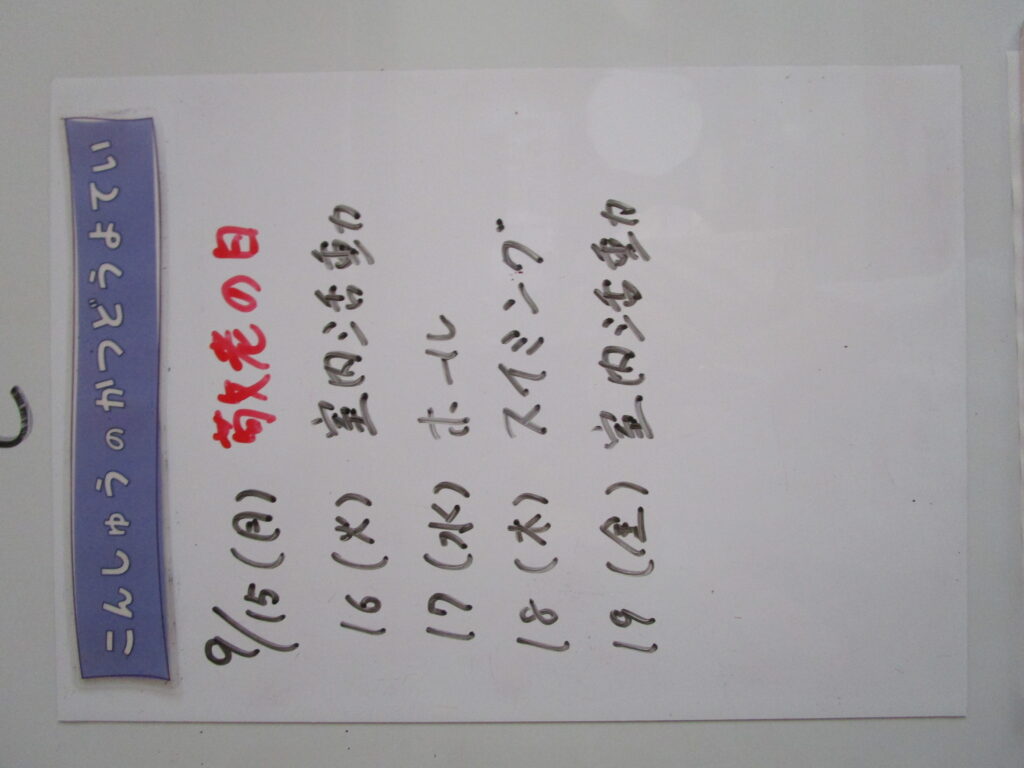 こんしゅうのかつどうよてい
9/15(月) 敬老の日
16(火) 室内活動
17(水) ホール
18(木) スイミング
19(金) 室内活動